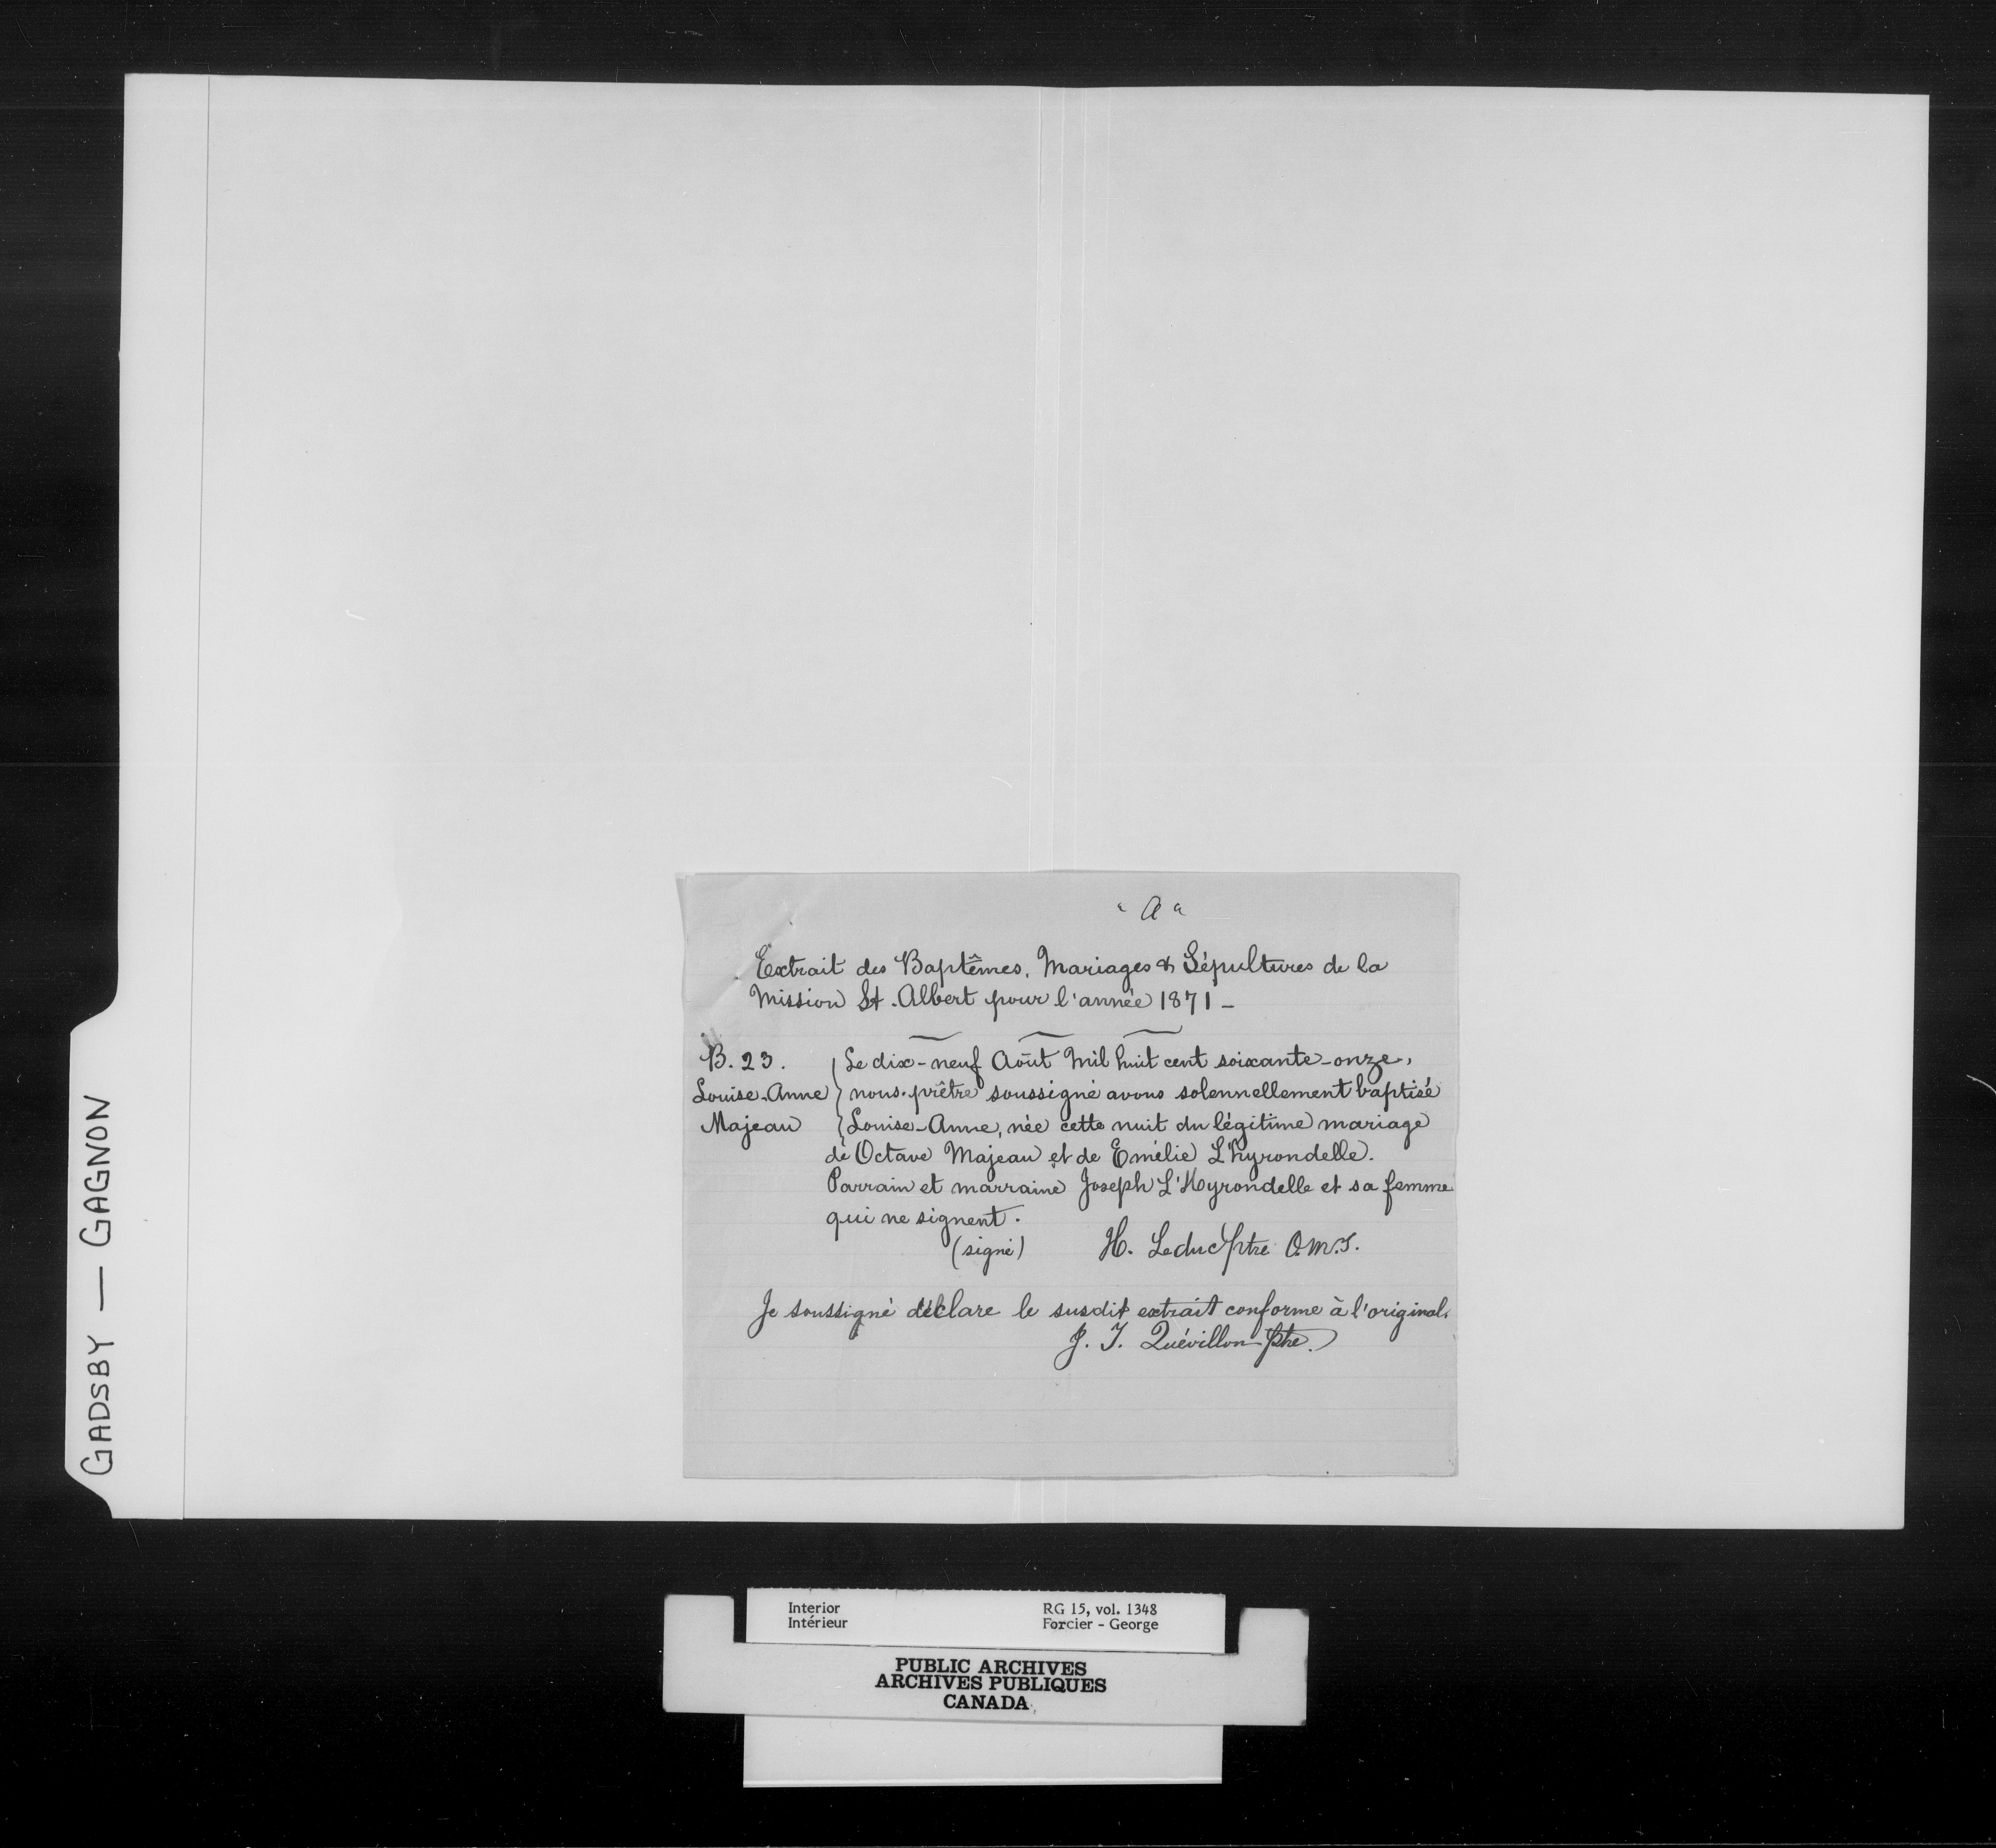 "A"
Extrait des Baptêmes, Mariages & Sépultures de la
Mission St. Albert pour l'année 1871 –
B. 23.
Louise-Anne
Majeau
Le dix-neuf Août Mil huit cent soixante-onze,
nous prêtre soussigné avons solennellement baptisé
Louise-Anne, née cette nuit du légitime mariage
de Octave Majeau et de Emélie L'hyrondelle.
Parrain et marraine Joseph L'Hyrondelle et sa femme
qui ne signent.
(signé) H. Leduc Ptre O.M.I.
Je soussigné déclare le susdit extrait conforme à l'original.
J. I. Quévillon Ptre.
GADSBY — GAGNON
Interior RG 15, vol. 1348
Intérieur Forcier - George
PUBLIC ARCHIVES
ARCHIVES PUBLIQUES
CANADA